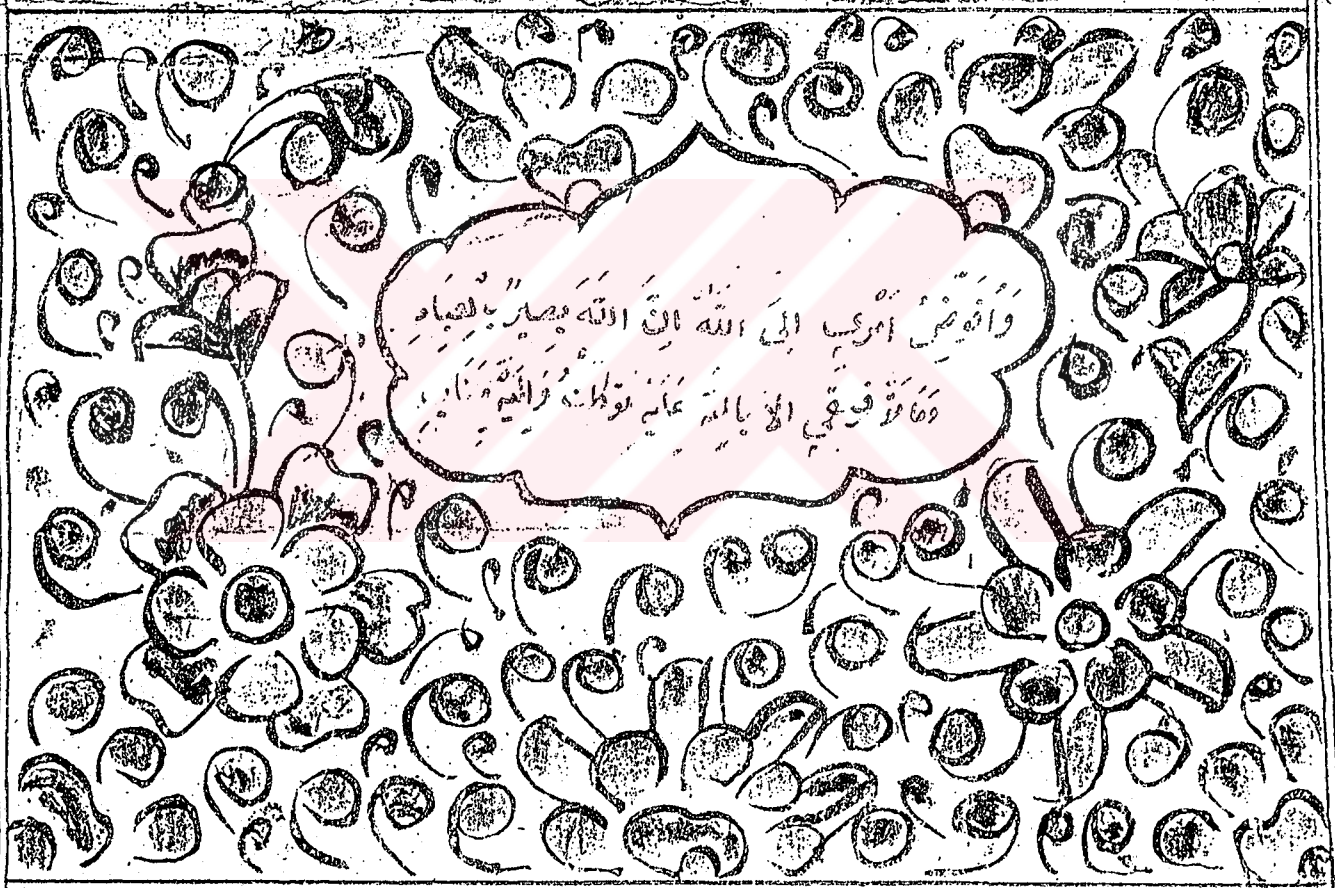 وَأُفَوِّضُ أَمْرِي إِلَى اللَّهِ إِنَّ اللَّهَ بَصِيرٌ بِالْعِبَادِ
وَمَا تَوْفِيقِي إِلَّا بِاللَّهِ عَلَيْهِ تَوَكَّلْتُ وَإِلَيْهِ أُنِيبُ